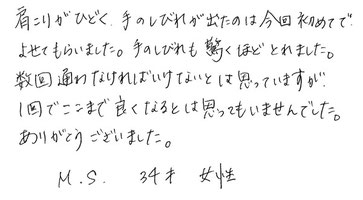 肩こりがひどく、手のしびれが出たのは今回初めてで
よせてもらいました。手のしびれも驚くほどとれました。
数回通わなければいけないとは思っていますが
1回でここまで良くなるとは思ってもいませんでした。
ありがとうございました。
M.S. 34才 女性